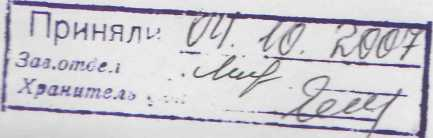 Приняли 04. 10. 2007
Зав.отдел
Хранитель